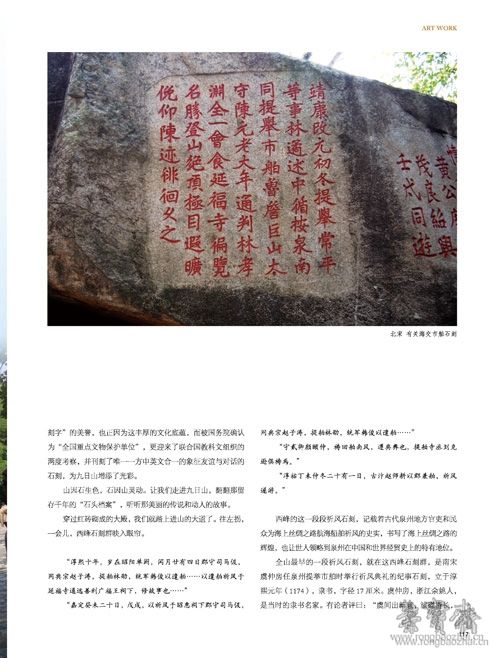 ART WORK
靖康改元初冬提舉常平
等事林遹述中循按泉南
同提舉市舶魯詹巨山太
守陳元老大年通判林孝
淵全一會食延福寺徧覽
名勝登山絕頂極目遐曠
俛仰陳迹徘徊久之
黄公
茂良紹興
壬戌同遊
北宋 有关海交市舶石刻
刻字”的美誉，也正因为这丰厚的文化底蕴，而被国务院确认
为“全国重点文物保护单位”，更迎来了联合国教科文组织的
两度考察，并刊刻了唯一一方中英文合一的象征友谊与对话的
石刻，为九日山增添了光彩。
山因石生色，石因山灵动。让我们走进九日山，翻翻那留
存千年的“石头档案”，听听那美丽的传说和动人的故事。
穿过红砖砌成的大殿，我们就踏上进山的大道了。往左拐，
一会儿，西峰石刻群映入眼帘。
“淳熙十年，岁在昭阳单阏，闰月廿有四日郡守司马伋，
同典宗赵子涛，提舶林劭，统军韩俊以遣舶……以遣舶祈风于
延福寺通远善利广福王祠下，修故事也……”
“嘉定癸未二十日，戊戌，以祈风于昭惠祠下郡守司马伋，
同典宗赵子涛，提舶林劭，统军韩俊以遣舶……”
“淳祐丁未仲冬二十有一日，古汴赵师耕以郡兼舶，祈风
遂游。”
西峰的这一段段祈风石刻，记载着古代泉州地方官吏和民
众为海上丝绸之路航海船舶祈风的史实，书写了海上丝绸之路的
辉煌，也让世人领略到泉州在中国和世界经贸史上的特有地位。
全山最早的一段祈风石刻，就在这西峰石刻群，是南宋
虞仲房任泉州提举市舶时举行祈风典礼的纪事石刻，立于淳
熙元年（1174），隶书，字径 17 厘米。虞仲房，浙江余姚人，
是当时的隶书名家。有论者评曰：
荣宝斋
www.rongbaozhai.cn
117